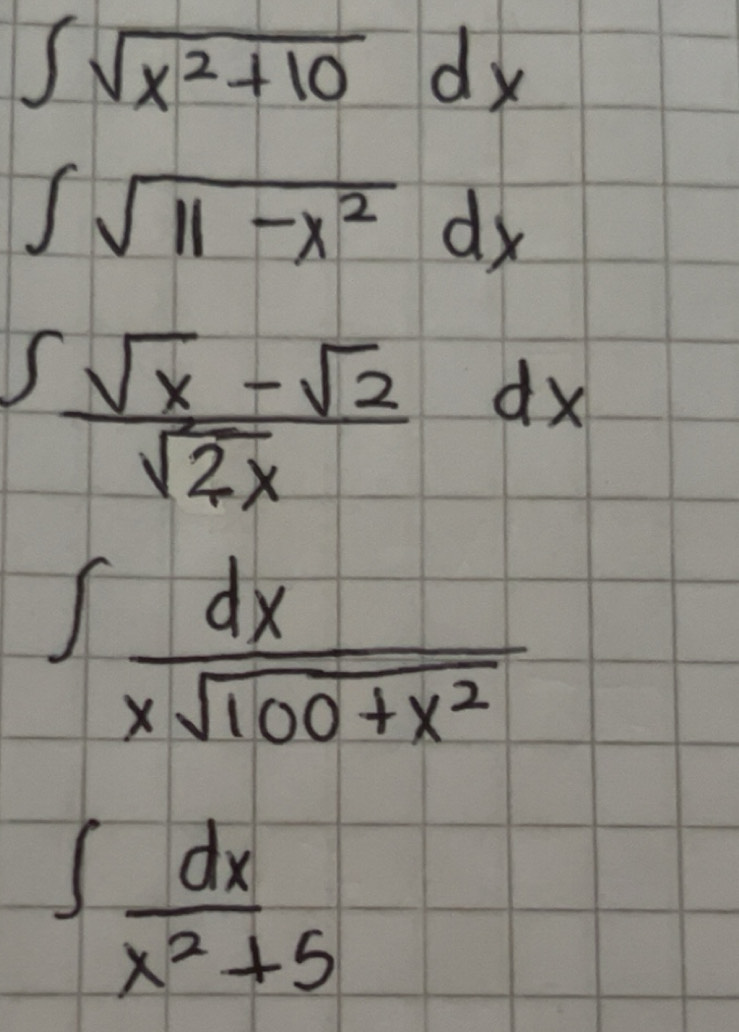 ∫ √(x²+10) dx
∫ √(11 -x²) dx
∫ (√x - √2)/√(2x) dx
∫ dx/(x√(100+x²))
∫ dx/(x²+5)